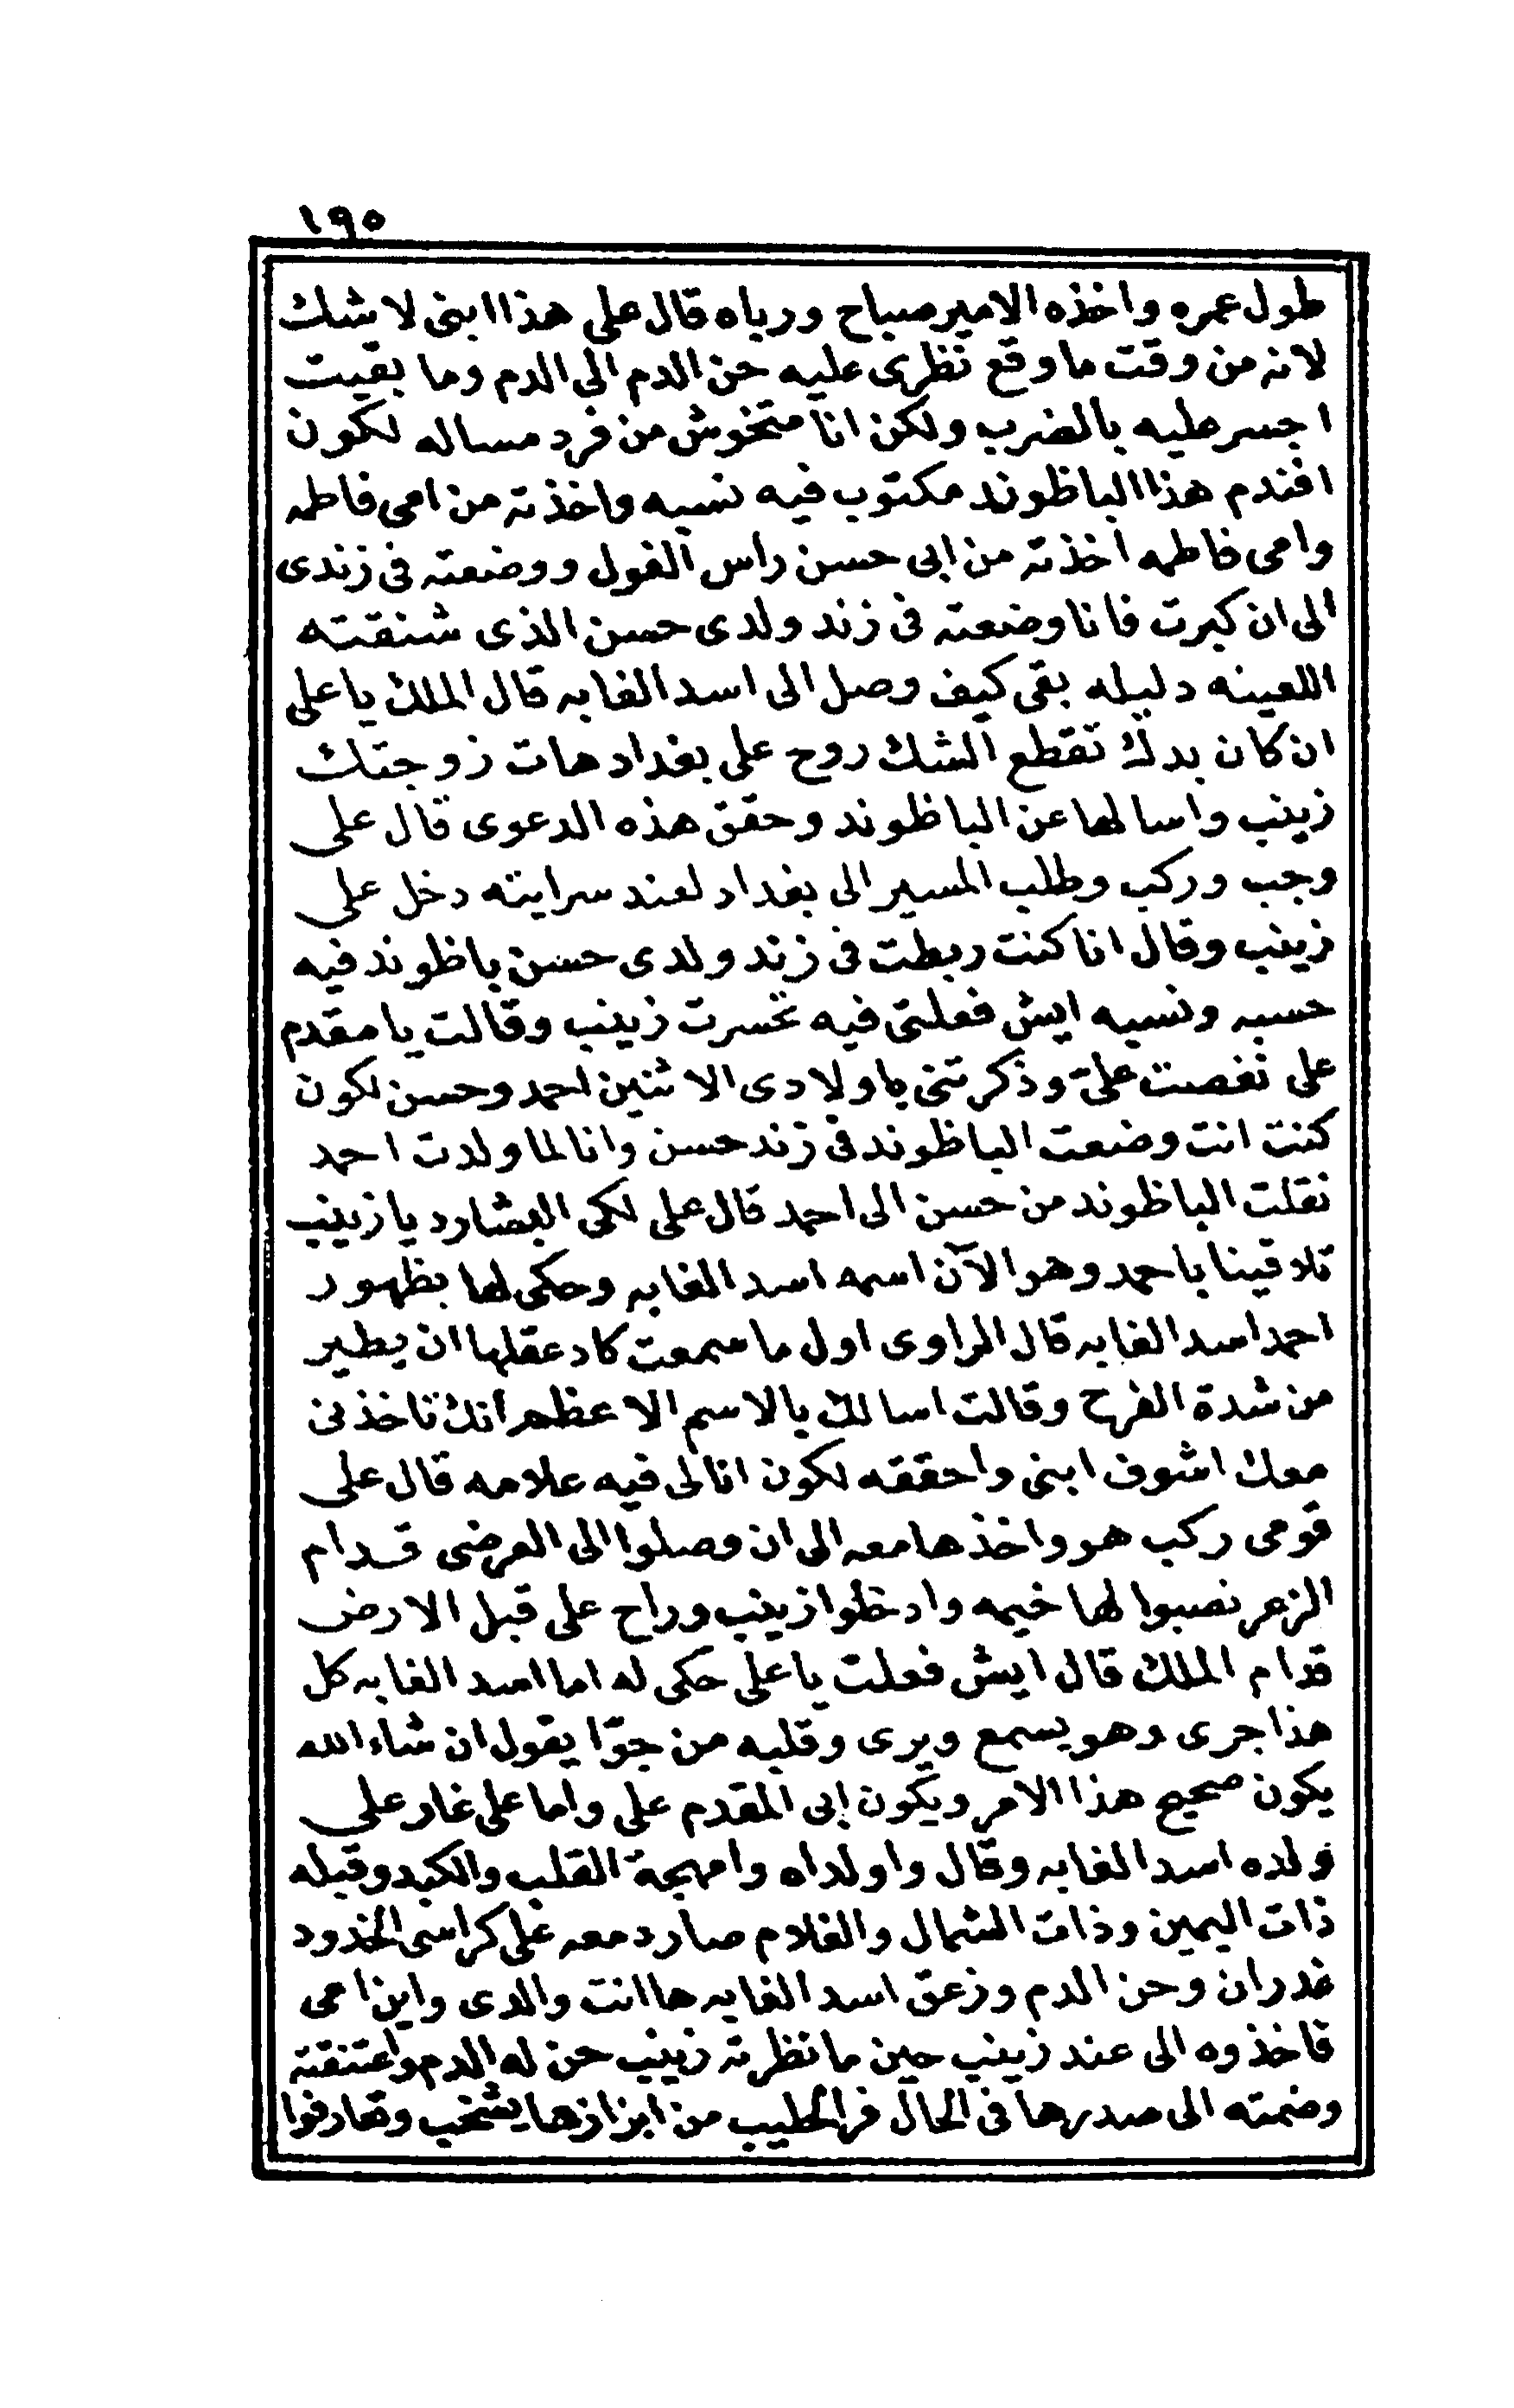 ١٩٥
طول عمره واخذه الامير صباح ورباه قال على هذا ابنى لا شك
لانه من وقت ما وقع نظرى عليه حن الدم الى الدم وما بقيت
اجسر عليه بالضرب ولكن انا متخوش من فرد مساله لكون
افندم هذا الباظوند مكتوب فيه نسبه واخذته من امى فاطمه
وامى فاطمه اخذته من ابى حسن راس الغول ووضعته فى زندى
الى ان كبرت فانا وضعته فى زند ولدى حسن الذى شنقته
اللعينه دليله بقى كيف وصل الى اسد الغابه قال الملك يا على
ان كان بدك تقطع الشك روح على بغداد هات زوجتك
زينب واسالها عن الباظوند وحقق هذه الدعوى قال على
وجب وركب وطلب المسير الى بغداد لعند سرايته دخل على
زينب وقال انا كنت ربطت فى زند ولدى حسن باظوند فيه
حسبه ونسبه ايش فعلتى فيه تحسرت زينب وقالت يا مقدم
على نغصت علىّ وذكرتنى باولادى الاثنين احمد وحسن لكون
كنت انت وضعت الباظوند فى زند حسن وانا لما ولدت احمد
نقلت الباظوند من حسن الى احمد قال على لكى البشاره يا زينب
تلاقينا باحمد وهو الآن اسمه اسد الغابه وحكى لها بظهور
احمد اسد الغابه قال الراوى اول ما سمعت كاد عقلها ان يطير
من شدة الفرح وقالت اسالك بالاسم الاعظم انك تاخذنى
معك اشوف ابنى واحققه لكون انا لى فيه علامه قال على
قومى ركب هو واخذها معه الى ان وصلوا الى العرضى قدام
الزعر نصبوا لها خيمه وادخلوا زينب وراح على قبل الارض
قدام الملك قال ايش فعلت يا على حكى له اما اسد الغابه كل
هذا جرى وهو يسمع ويرى وقلبه من جوّا يقول ان شاء الله
يكون صحيح هذا الامر ويكون ابى المقدم على واما على غار على
ولده اسد الغابه وقال واولداه وامهجة القلب والكبد وقبله
ذات اليمين وذات الشمال والغلام صار دمعه على كراسى الخدود
غدران وحن الدم وزعق اسد الغابه ها انت والدى واين امى
فاخذوه الى عند زينب حين ما نظرته زينب حن له الدم واعتنقته
وضمته الى صدرها فى الحال فر الحليب من ابزازها يشخب وتعارفوا